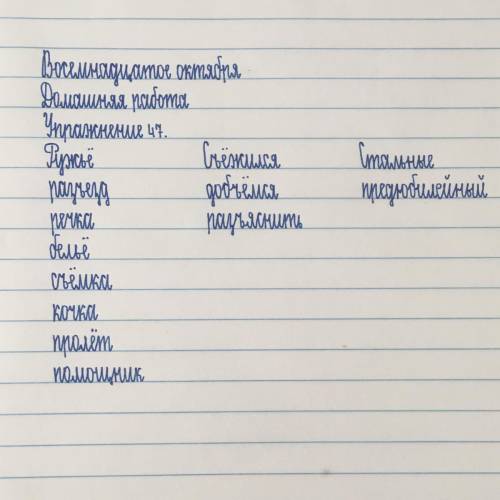 Восемнадцатое октября
Домашняя работа
Упражнение 47.
Ружьё Съёжился Стальные
разъезд добъёмся предюбилейный
речка разъяснить
бельё
съёмка
кочка
пролёт
помощник